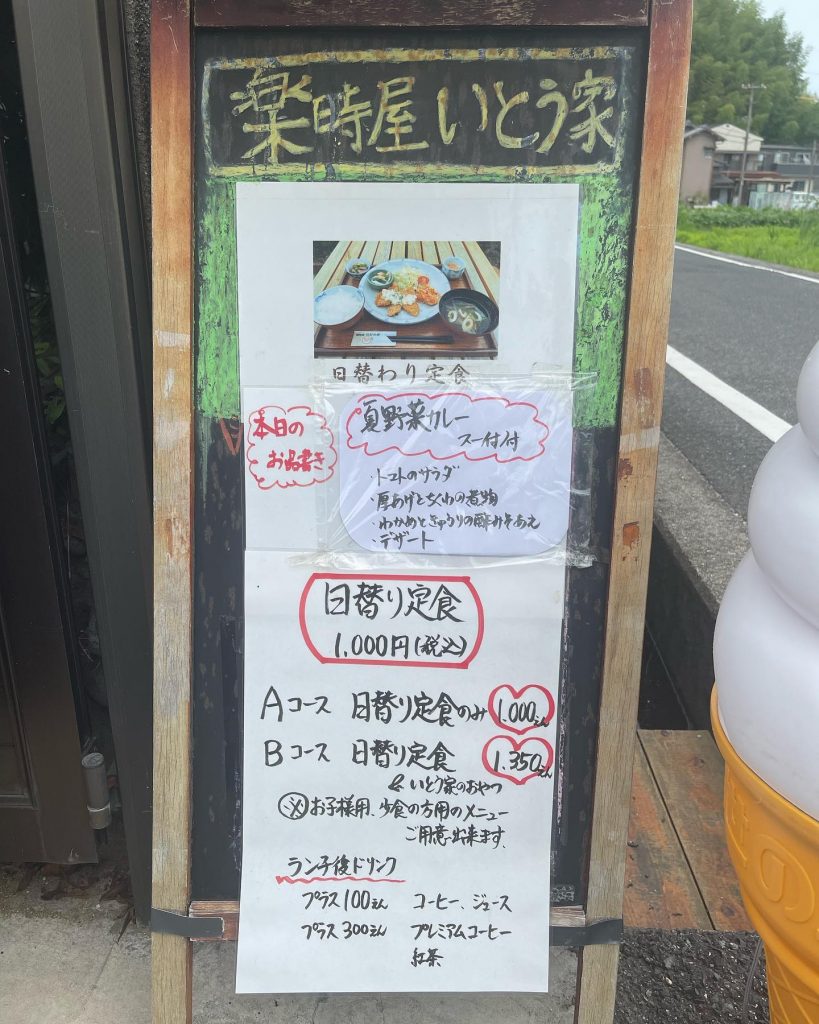 楽時屋いとう家
日替わり定食
本日の
お品書き
夏野菜カレー
スープ付
・トマトのサラダ
・厚あげとちくわの煮物
・わかめときゅうりの酢みそあえ
・デザート
日替り定食
1,000円(税込)
Aコース 日替り定食のみ 1.000えん
Bコース 日替り定食 1.350えん
& いとう家のおやつ
※お子様用、少食の方用のメニュー
ご用意出来ます。
ランチ後ドリンク
プラス100えん コーヒー、ジュース
プラス300えん プレミアムコーヒー
紅茶